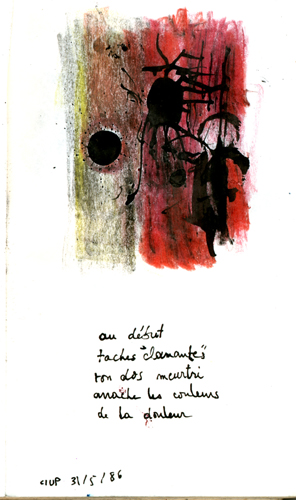 au début
taches "clamantes"
ton dos meurtri
arrache les couleurs
de la douleur
CIUP 31/5/86